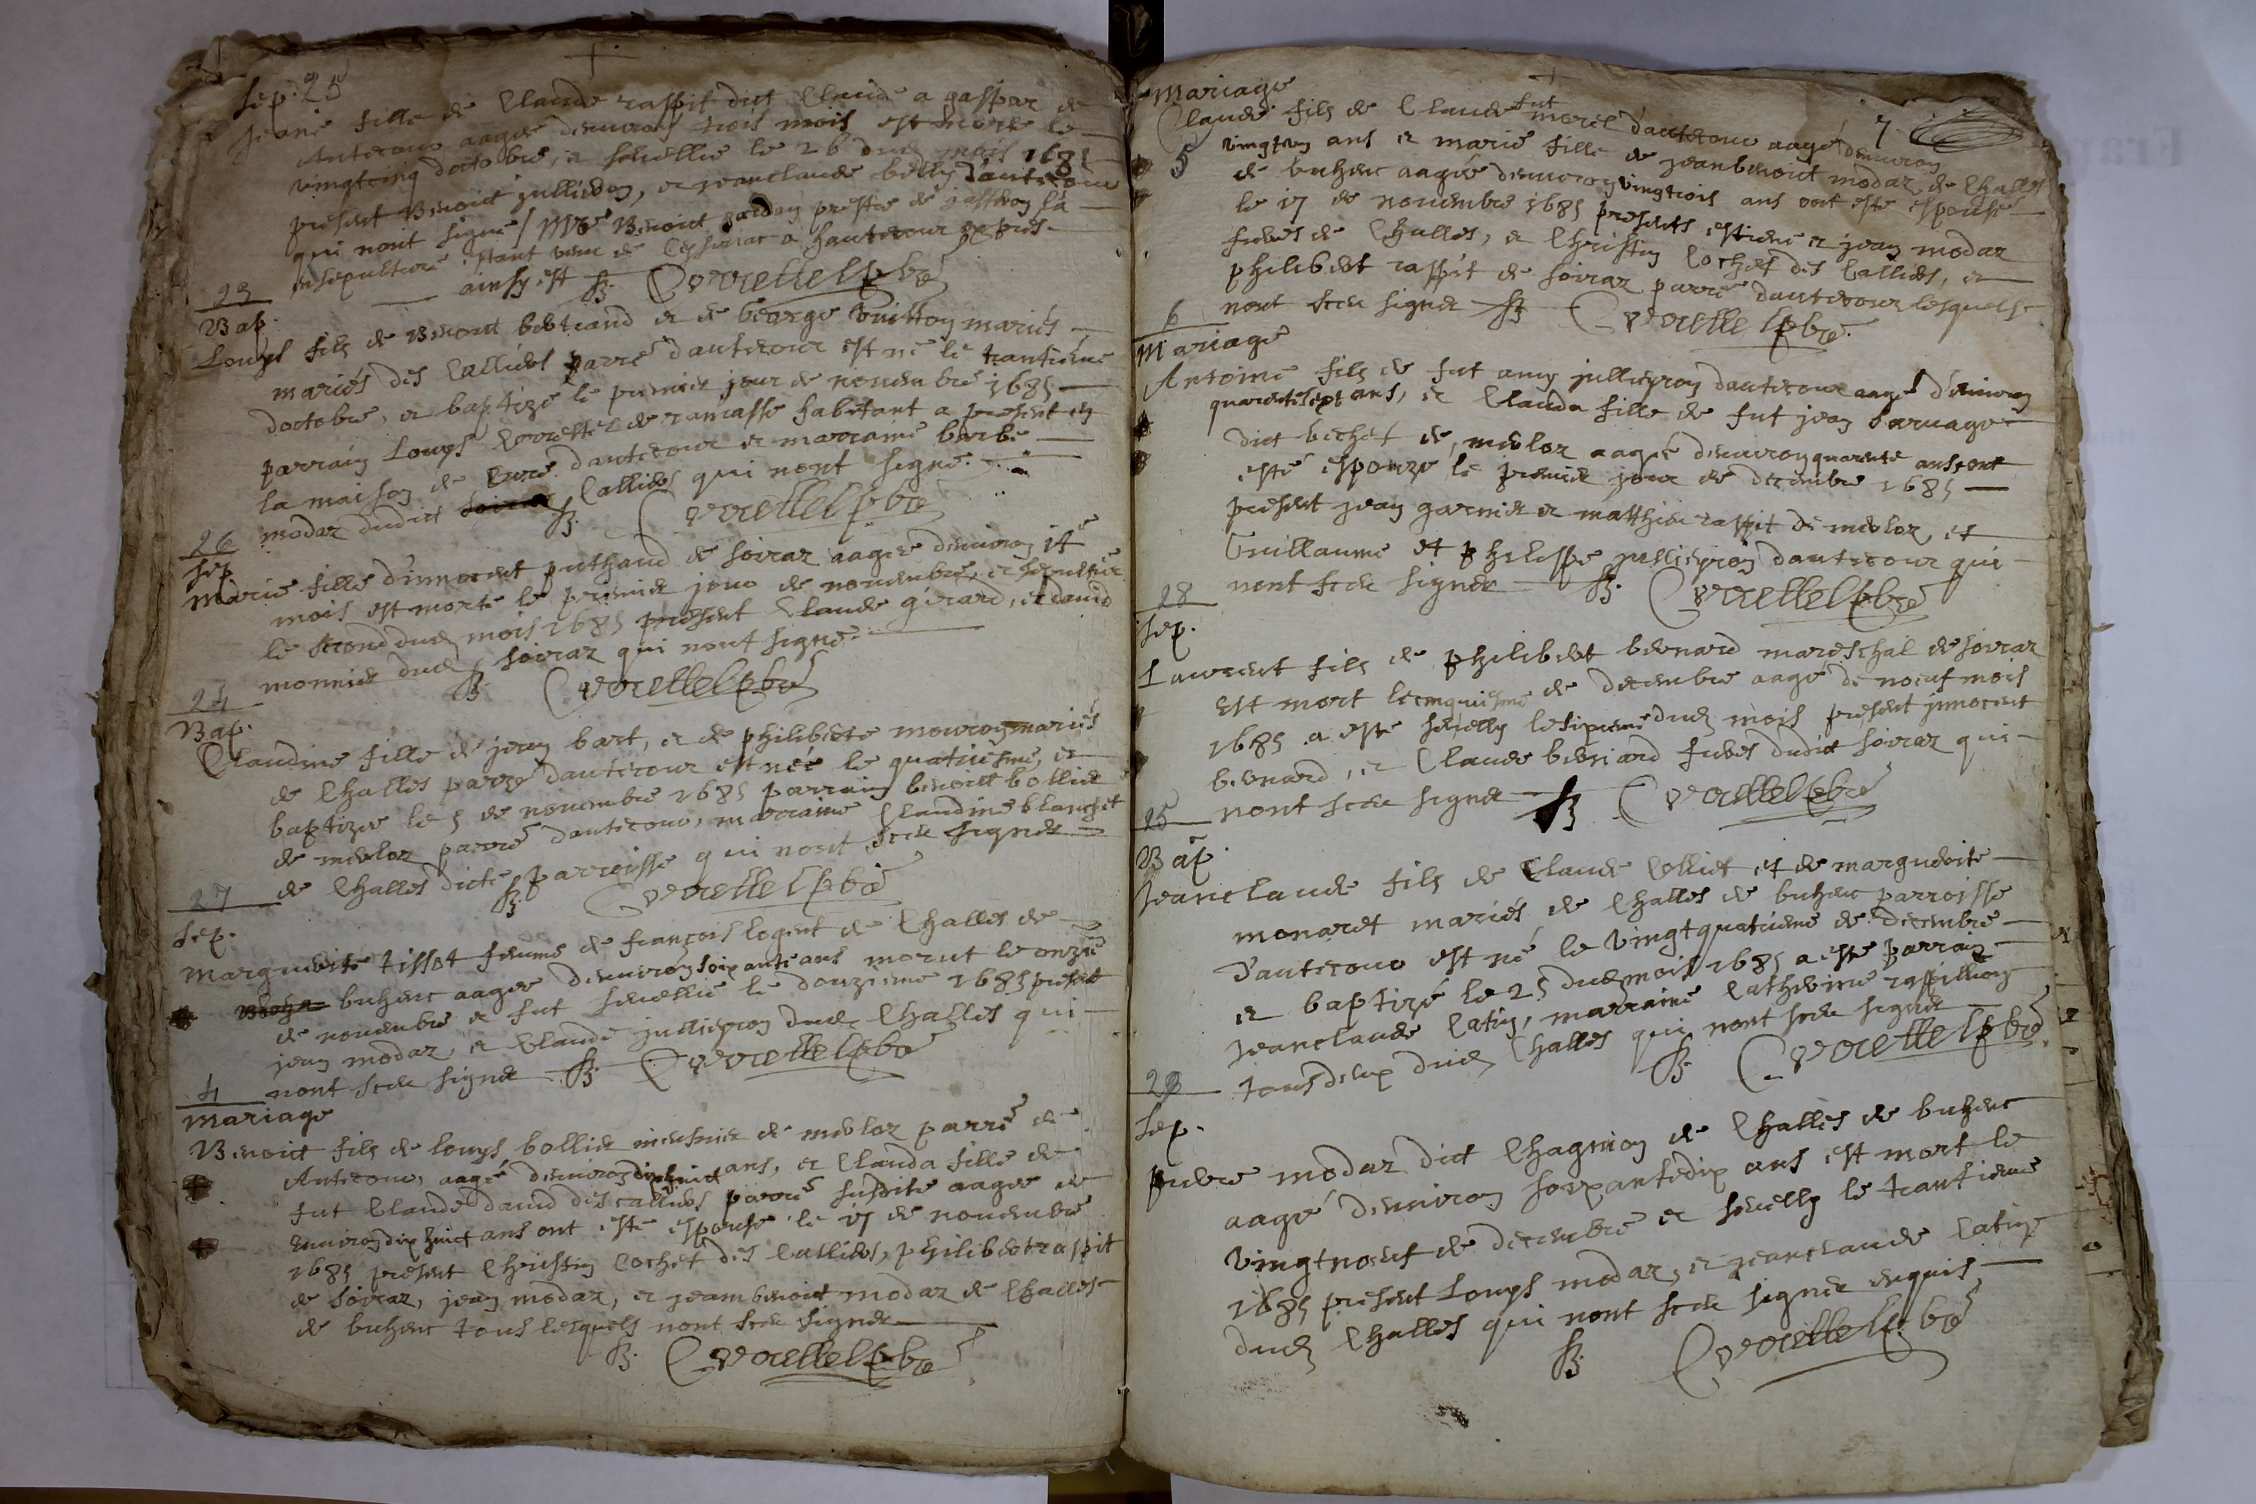 Sep. 25
Jeane fille de Claude raffit dict Claude a gaspar de
Antecour aagee denviron trois mois est morte le
vingtcinq doctobre, et sevellie le 26 dud mois 1685
present Benoict jullieron, et jeanclaude betty dantecour
qui nont signe / Mre Benoict prestre de la
sepulture estant venu de a hautecour expres
ainsy est Correttel pbre
23
Bap.
Louys fils de Benoict bertrand et de George mariés
mariés des Calliers parre dantecour est né le trantieme
doctobre, et baptizé le premier jour de novembre 1685
parrain Louys Correttel de rancasse habitant a present en
la maison de Cure dantecour et marraine barbe
modaz dudict Calliers qui nont signe.
Correttel pbre
26
Sep
Marie fille dinnocent puthaud de soiraz aagee denviron 14
mois est morte le premier jour de novembre, et sepulture
le second dud mois 1685 present Claude girard, et david
monnier dud soiraz qui nont signe.
Correttel pbre
24
Bap.
Claudine fille de jean bart, et de philiberte mouron mariés
de Challes parre dantecour est née le quatriesme, et
baptizee le 5 de novembre 1685 parrain benoict bollier
de merloz parre dantecour, marraine Claudine blanchet
de Challes dicte parroisse qui nont sceu signer
Correttel pbre
27
Sep.
Marguerite tissot femme de françois logent de Challes de
buhenc aagee denviron soixante ans morut le onzie
de novembre et fut sevellie le douzieme 1685 present
jean modaz, et Claude jullieron dud Challes qui
nont sceu signer Correttel pbre
4
Mariage
Benoict fils de Louys bollier meusnier de merloz parre de
Antecour, aagé denviron dixhuict ans, et Clauda fille de
fut Claude david des calliers parre susdite aagee de
environ dix huict ans ont este espouse le 17 de novembre
1685 present Christin Cochet des Calliers, philibert raffit
de soiraz, jean modaz, et jeanbenoict modaz de Challes
de buhenc tous lesquels nont sceu signer
Correttel pbre
Mariage
7
fut
Claude fils de Claude morel dantecour aagé denviron
5 vingt ans et marie fille de jeanbenoict modaz de Challes
de buhenc aagée denviron vingtrois ans ont este espouse
le 17 de novembre 1685 presents estiene et jean modaz
freres de Challes, et Christin Cochet des Calliers, et
philibert raffit de soiraz parre dantecour lesquels
nont sceu signer Correttel pbre.
6
Mariage
Antoine fils de fut amy jullieron dantecour aagé denviron
quarentesept ans, et Clauda fille de fut jean
dict bechet de merloz aagée denviron quarente ans ont
esté espouze le premier jour de decembre 1685
present jean garnier et matthieu raffit de merloz, et
Guillaume et philippe jullieron dantecour qui
nont sceu signer Correttel pbre
28
Sep.
Laurent fils de philibert bernard mareschal de soiraz
est mort le cinquiesme de decembre aage de noeuf mois
1685 a este sevelly le sixieme dud mois present jnnocent
bernard, et Claude bernard freres dudict soiraz qui
nont sceu signer Correttel pbre
25
Bap.
Jeanclaude fils de Claude Colliet et de marguerite
monaret mariés de Challes de buhenc parroisse
dantecour est né le vingtquatrieme de decembre
et baptizé le 25 dud mois 1685 a este parrain
jeanclaude Catin, marraine Catherine raffillion
tous deux dud Challes qui nont sceu signer
Correttel pbre
29
Sep.
pierre modaz dict Chagnion de Challes de buhenc
aagé denviron soixantedix ans est mort le
vingtnoeuf de decembre et sevelly le trantieme
1685 present Louys modaz, et jeanclaude Catin
dud Challes qui nont sceu signer enquis,
Correttel pbre